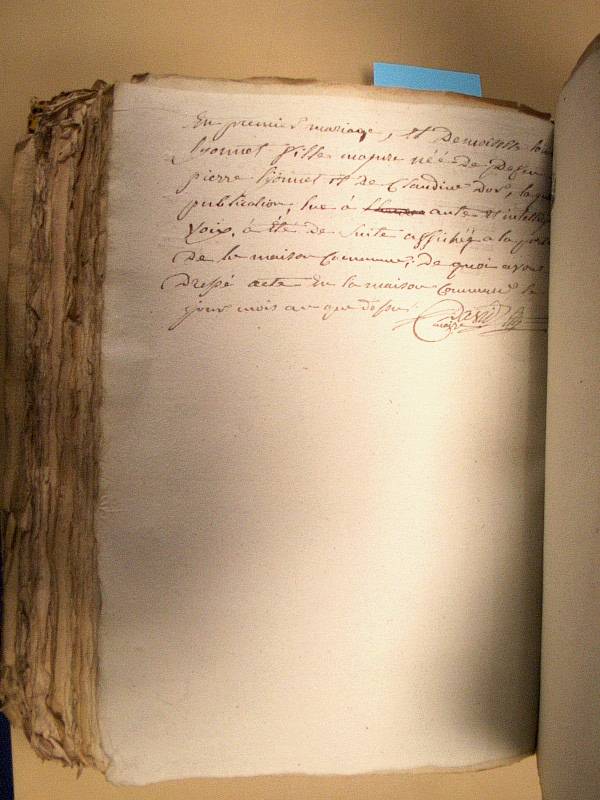 En premier mariage, et Demoiselle
Lyonnet fille majeure née de
pierre Lyonnet et de Claudine
publication, lue à haute et intelligible
voix, a été de suite affichée a la porte
de la maison Commune; de quoi avons
Dressé acte En la maison Commune le
jour mois an que dessus
David
maire